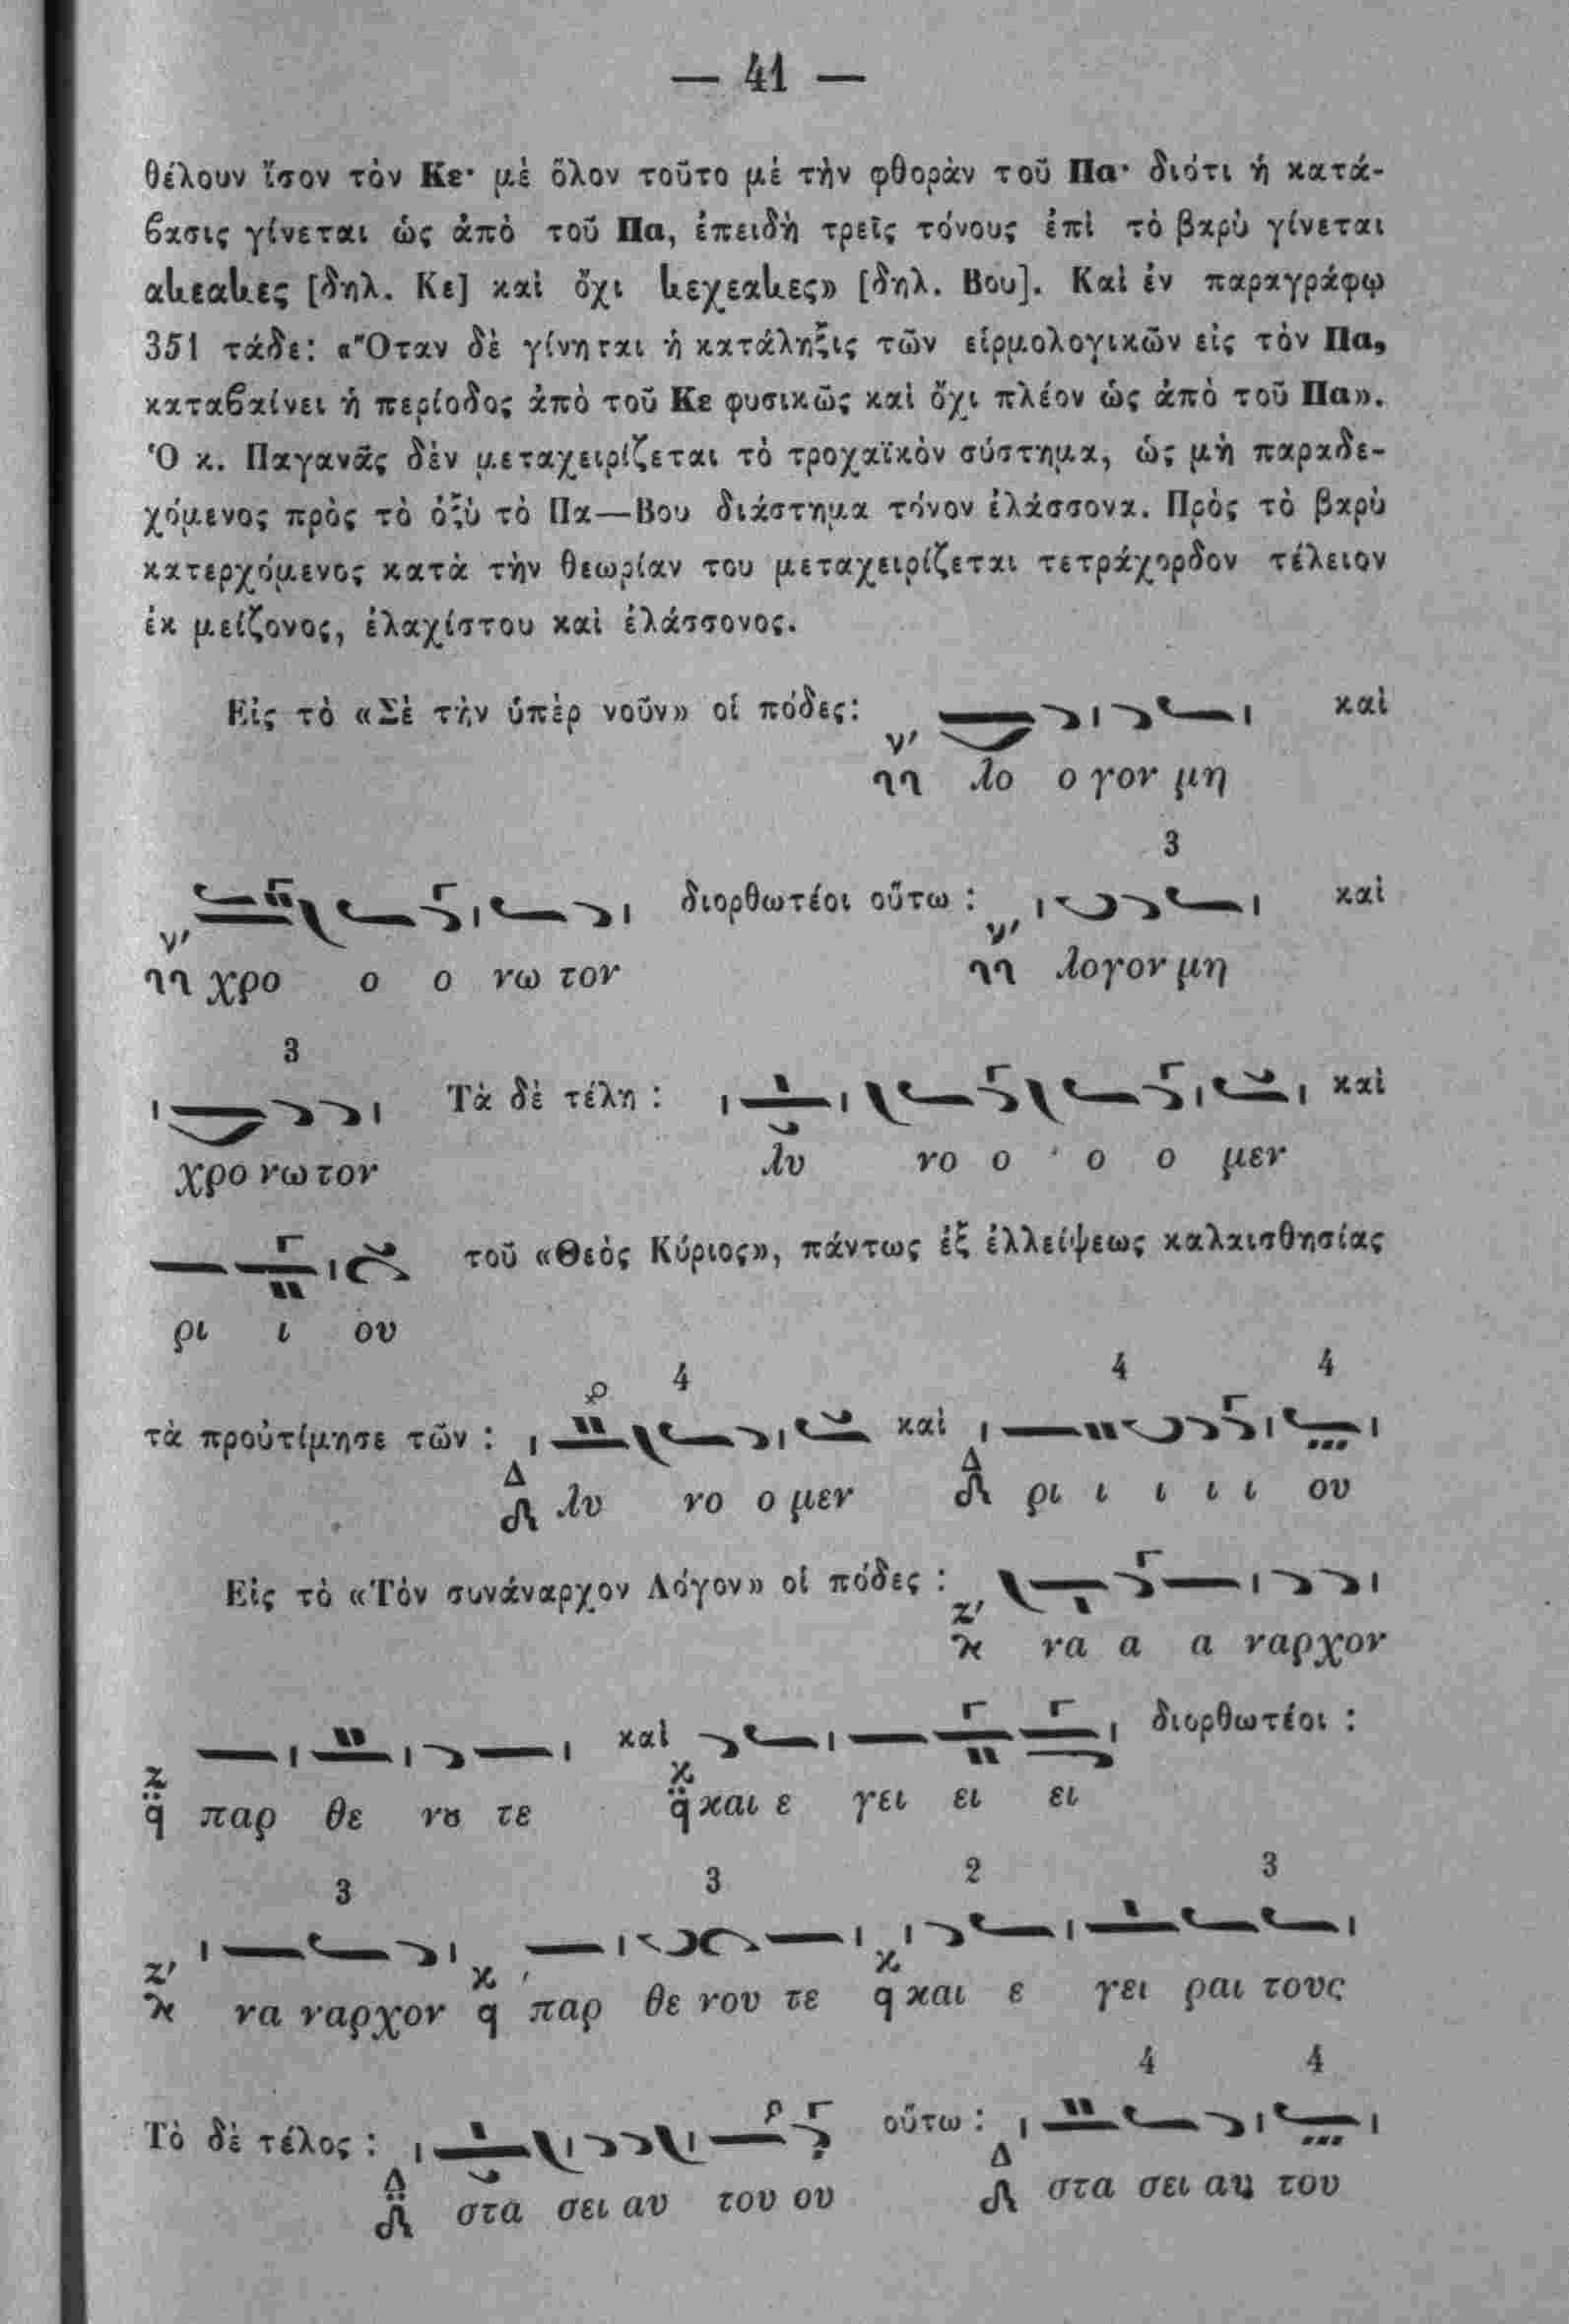 — 41 —
θέλουν ἴσον τὸν Κε· μὲ ὅλον τοῦτο μὲ τὴν φθορὰν τοῦ Πα· διότι ἡ κατά-
βασις γίνεται ὡς ἀπὸ τοῦ Πα, ἐπειδὴ τρεῖς τόνους ἐπὶ τὸ βαρὺ γίνεται
[δηλ. Κε] καὶ ὄχι [δηλ. Βου]. Καὶ ἐν παραγράφῳ
351 τάδε: «Ὅταν δὲ γίνηται ἡ κατάληξις τῶν εἱρμολογικῶν εἰς τὸν Πα,
καταβαίνει ἡ περίοδος ἀπὸ τοῦ Κε φυσικῶς καὶ ὄχι πλέον ὡς ἀπὸ τοῦ Πα».
Ὁ κ. Παγανᾶς δὲν μεταχειρίζεται τὸ τροχαϊκὸν σύστημα, ὡς μὴ παραδε-
χόμενος πρὸς τὸ ὀξὺ τὸ Πα—Βου διάστημα τόνον ἐλάσσονα. Πρὸς τὸ βαρὺ
κατερχόμενος κατὰ τὴν θεωρίαν του μεταχειρίζεται τετράχορδον τέλειον
ἐκ μείζονος, ἐλαχίστου καὶ ἐλάσσονος.
Εἰς τὸ «Σὲ τὴν ὑπὲρ νοῦν» οἱ πόδες: καὶ
ν′ λο ο γον μη
3
διορθωτέοι οὕτω : καὶ
ν′ χρο ο ο νω τον ν′ λογον μη
3
Τὰ δὲ τέλη : καὶ
χρο νω τον λυ νο ο ο ο μεν
τοῦ «Θεὸς Κύριος», πάντως ἐξ ἐλλείψεως καλαισθησίας
ρι ι ου
4 4 4
τὰ προὐτίμησε τῶν : καὶ
Δ λυ νο ο μεν Δ ρι ι ι ι ι ου
Εἰς τὸ «Τὸν συνάναρχον Λόγον» οἱ πόδες :
Ζ′ να α α ναρχον
καὶ διορθωτέοι :
παρ θε νȣ τε και ε γει ει ει
3 3 2 3
Ζ′ να ναρχον παρ θε νου τε και ε γει ραι τους
4 4
Τὸ δὲ τέλος : οὕτω :
Δ στα σει αυ του ου Δ στα σει αυ του